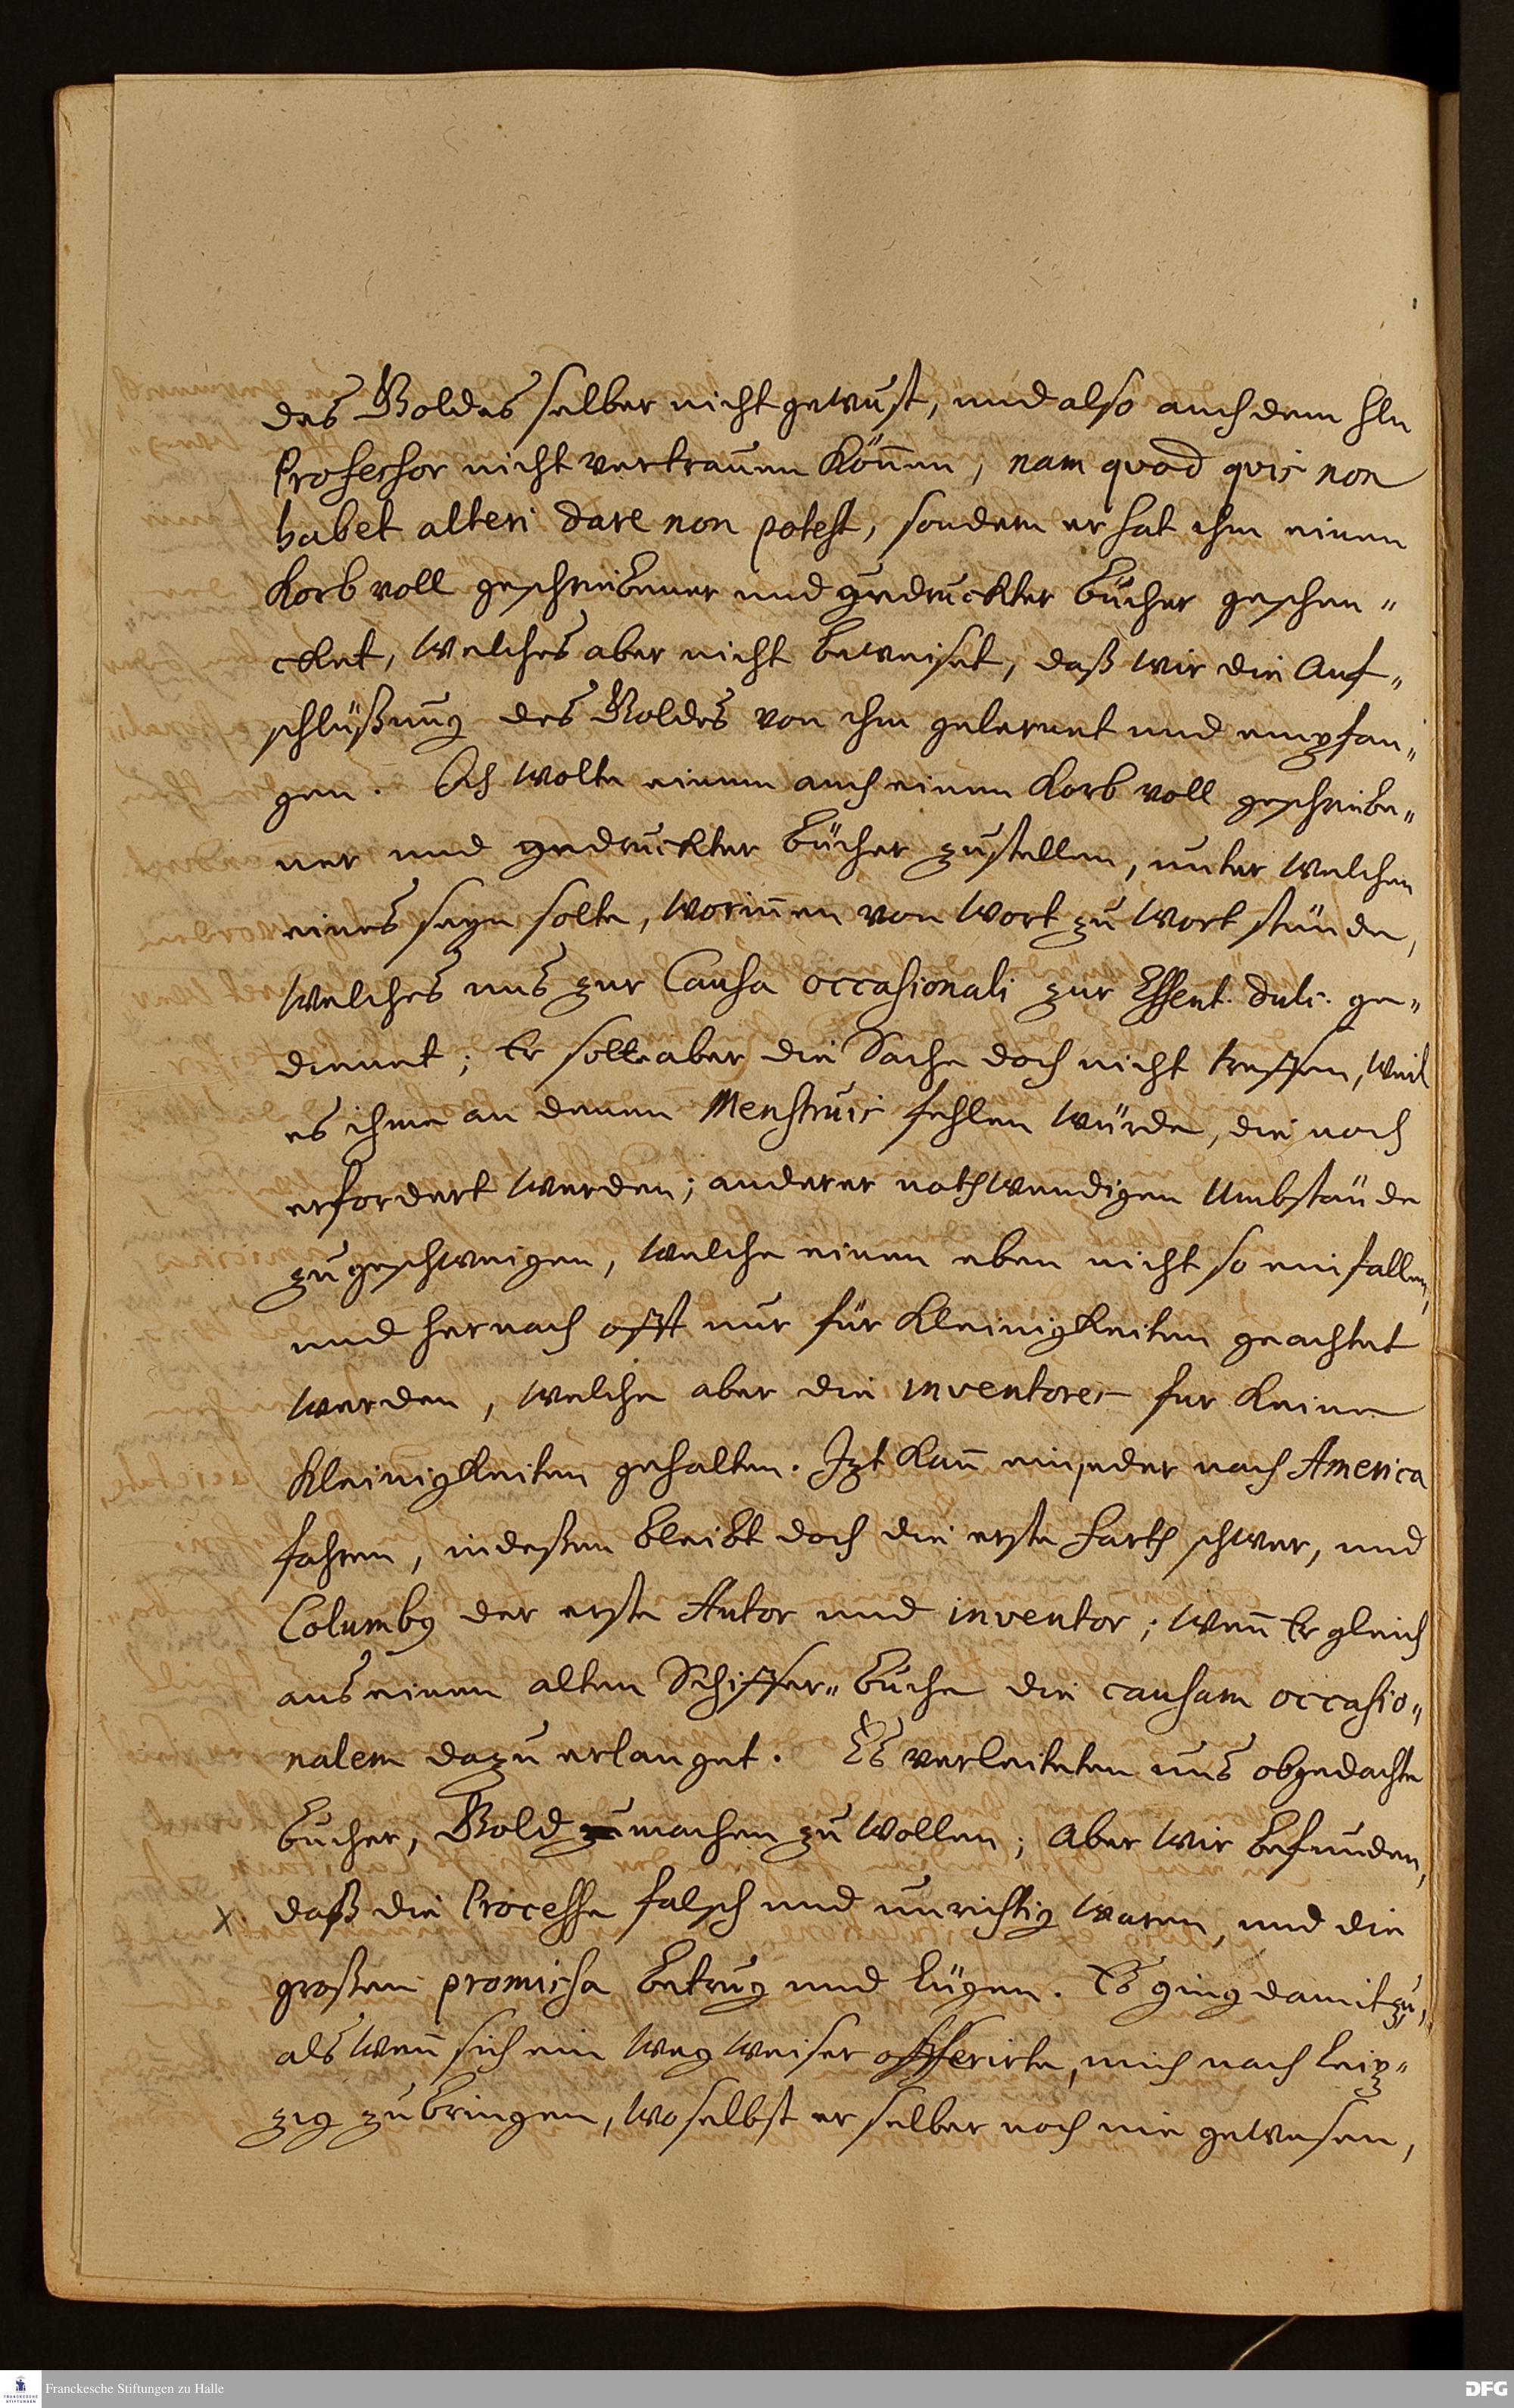 des Goldes selber nicht gewust, und also auch dem Hln
Professor nicht vertrauen können, nam quod quis non
habet alteri dare non potest, sondern er hat ihm einen
Korb voll geschriebener und gedruckter bücher geschen„
cket, welches aber nicht beweiset, daß wir die Auf„
schlüßung des Goldes von ihm gelernet und empfan„
gen. Ich wolte einem auch einen Korb voll geschriebe„
ner und gedruckter bücher zustellen, unter welchen
eines seyn solte, worinnen von Wort zu Wort stünde,
welches uns zur Causa occasionali zur Essent. dulc. ge„
dienet; Er solte aber die Sache doch nicht treffen, weil
es ihme an denen Menstruis fehlen würde, die noch
erfordert werden; anderer nothwendigen Umbstände
zugeschweigen, welche einen eben nicht so einfallen,
und hernach offt nur für Kleinigkeiten geachtet
werden, welche aber die inventores fur keine
Kleinigkeiten gehalten. Jzt kan̄ ein jeder nach America
fahren, indeßen bleibt doch die erste Farth schwer, und
Columbg der erste Autor und inventor; wen̄ Er gleich
aus einen alten Schiffer„ buche die causam occasio„
nalem dazu erlanget. Es verleiteten uns obgedachte
bücher, Gold zu machen zu wollen; Aber wir befunden,
x daß die Processe falsch und unrichtig waren, und die
großen promissa betrug und lügen. Es ging damit zu,
als wen̄ sich ein Wegweiser offerirte, mich nach Leip„
zig zubringen, woselbst er selber noch nie gewesen,
Franckesche Stiftungen zu Halle
FRANCKESCHE STIFTUNGEN
DFG